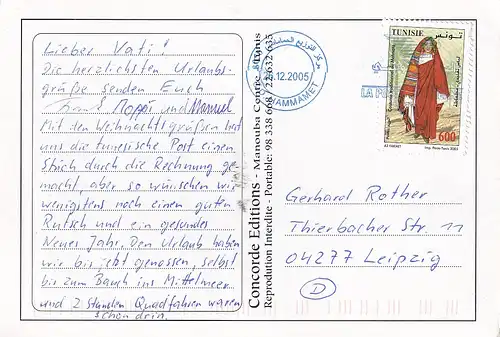 Lieber Vati!
Die herzlichsten Urlaubs-
grüße senden Euch
Moppi und Manuel
Mit den Weihnachtsgrüßen hat
uns die tunesische Post einen
Strich durch die Rechnung ge-
macht, aber so wünschen wir
wenigstens noch einen guten
Rutsch und ein gesundes
Neues Jahr. Den Urlaub haben
wir bis jetzt genossen, selbst
bis zum Bauch ins Mittelmeer
und 2 Stunden Quadfahren waren
schon drin.
Concorde Editions - Manouba Centre - Tunis
Reprodution Interdite - Portable: 98 338 668 / 22 632 635
مركز التوزيع
.12.2005
HAMMAMET
LA PO
TUNISIE تونس
600
Gerhard Rother
Thierbacher Str. 11
04277 Leipzig
D